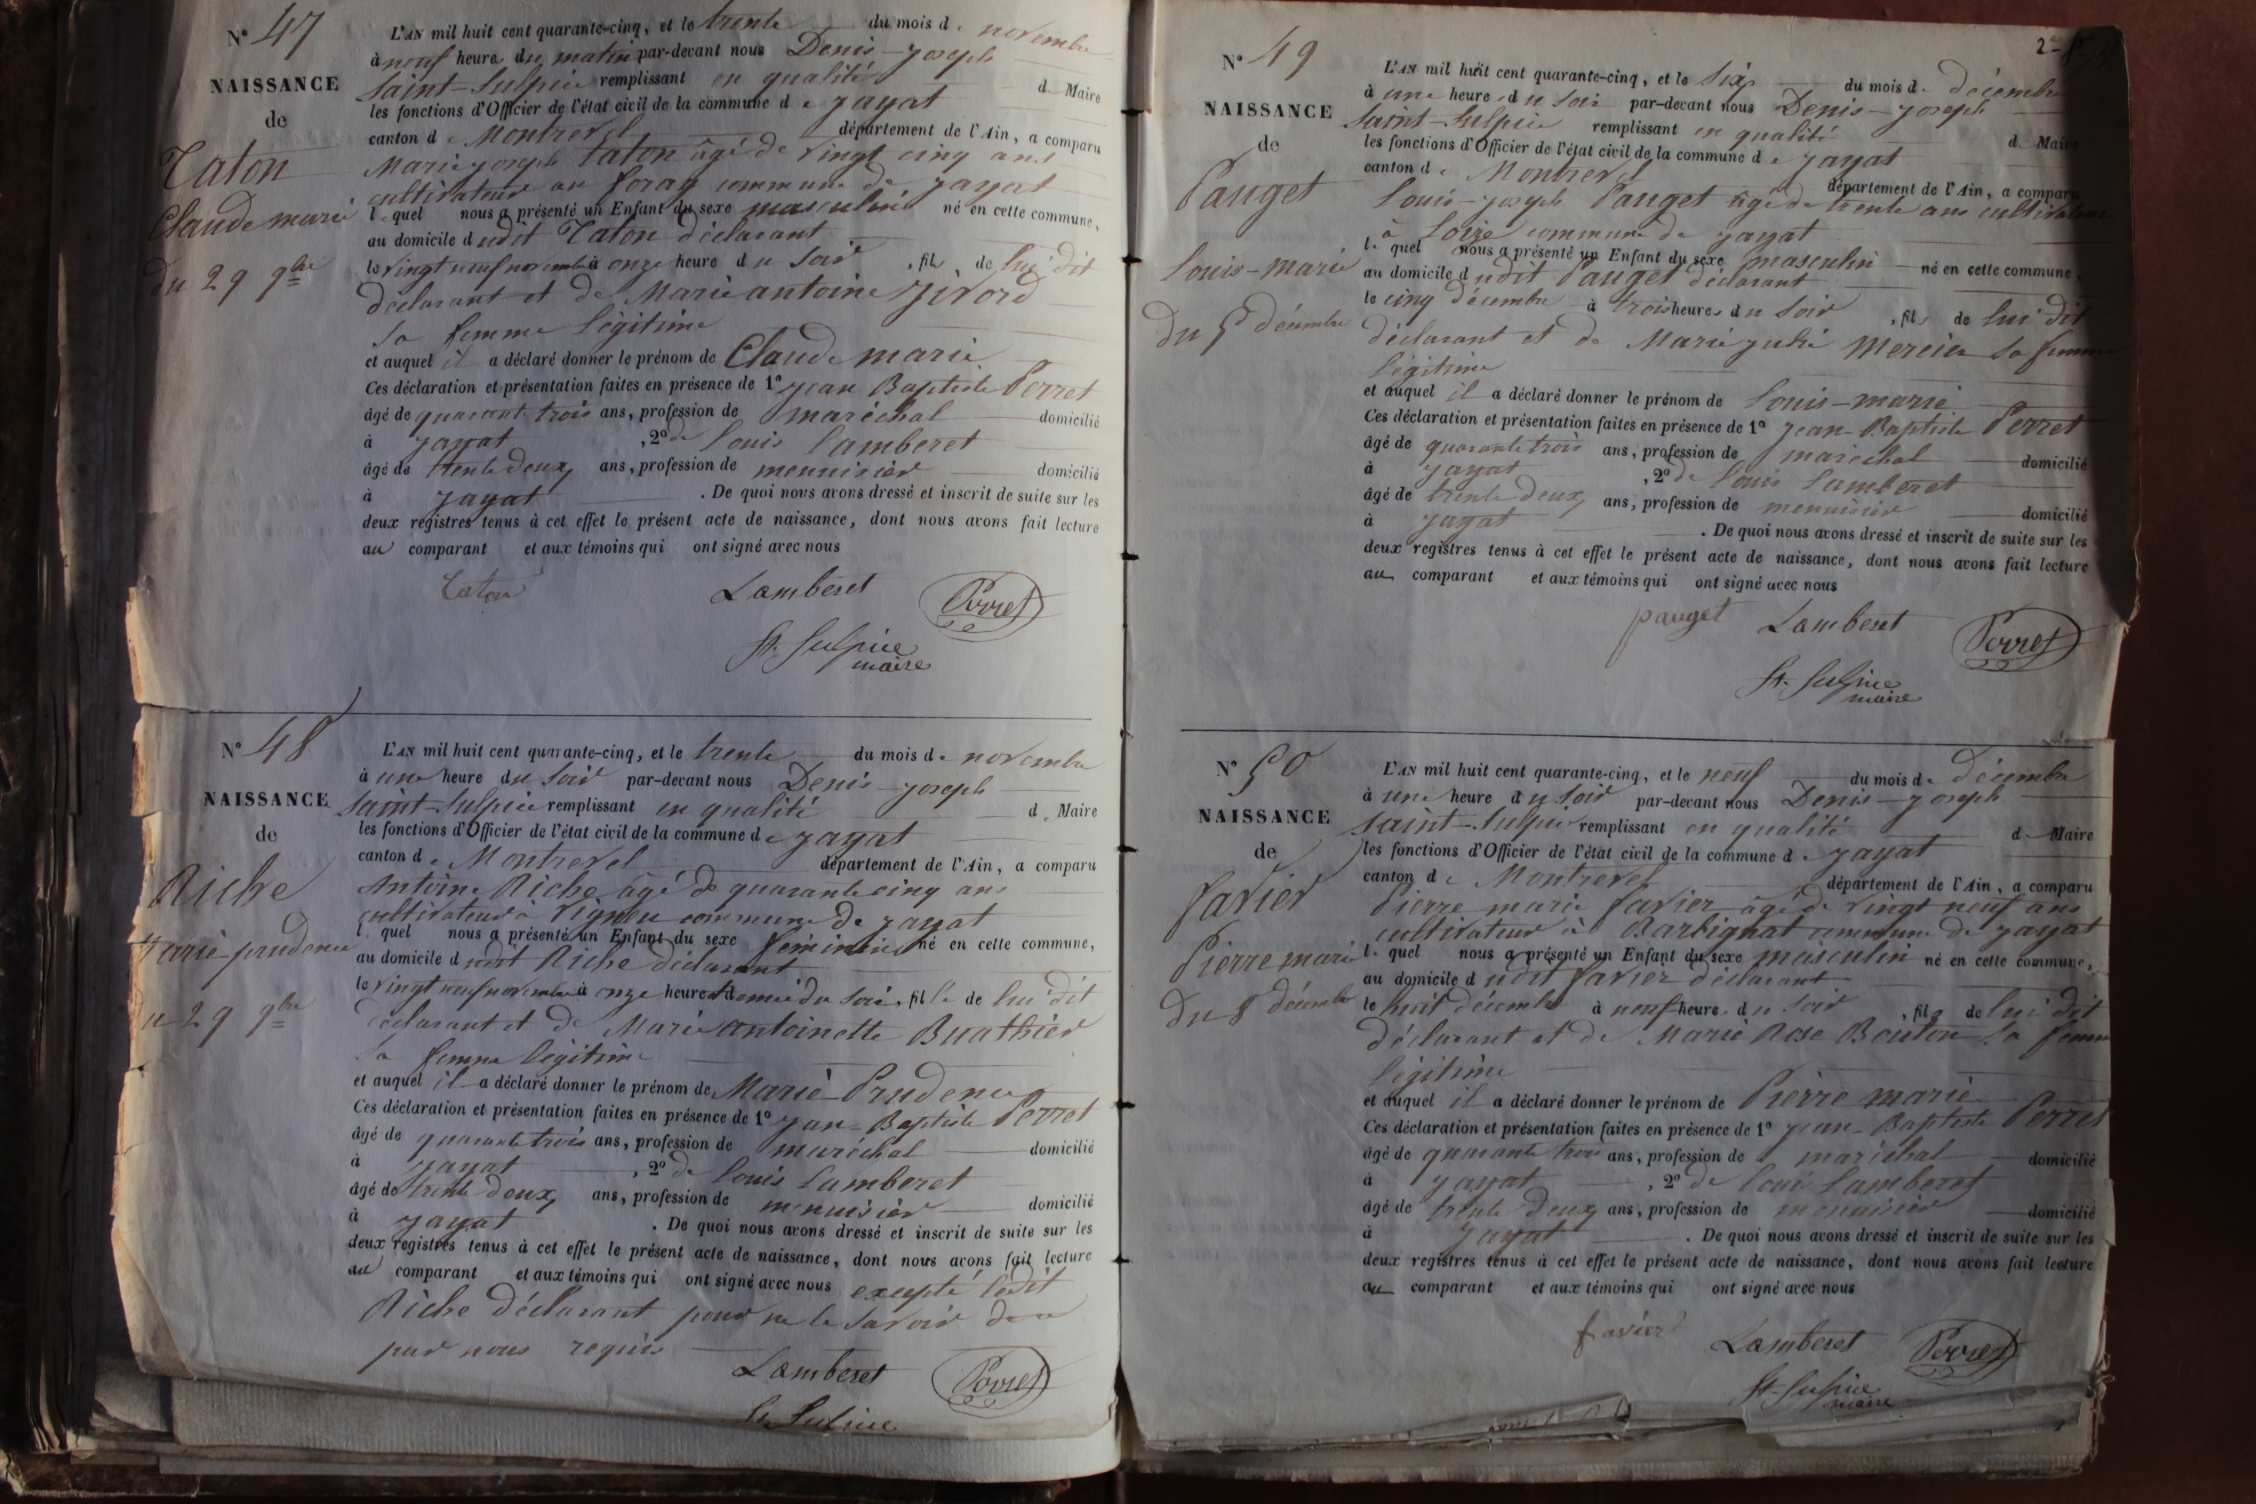 N° 47
NAISSANCE
de
Taton
Claude marie
du 29 9bre
L'AN mil huit cent quarante-cinq, et le trente du mois de novembre
à neuf heure du matin par-devant nous Denis-joseph
Saint-Sulpice remplissant en qualité de Maire
les fonctions d'Officier de l'état civil de la commune de jayat
canton de Montrevel département de l'Ain, a comparu
Marie joseph Taton âgé de vingt cinq ans
cultivateur au foray commune de jayat
lequel nous a présenté un Enfant du sexe masculin né en cette commune,
au domicile dudit Taton déclarant
le vingt neuf novembre à onze heure du soir, fils de lui dit
déclarant et de Marie antoine
sa femme légitime
et auquel il a déclaré donner le prénom de Claude marie
Ces déclaration et présentation faites en présence de 1° jean Baptiste Perret
âgé de quarante trois ans, profession de maréchal domicilié
à jayat, 2° de Louis Lamberet
âgé de trente deux ans, profession de menuisier domicilié
à jayat. De quoi nous avons dressé et inscrit de suite sur les
deux registres tenus à cet effet le présent acte de naissance, dont nous avons fait lecture
au comparant et aux témoins qui ont signé avec nous
Taton Lamberet Perret
St. Sulpice
maire
N° 48
NAISSANCE
de
Riche
Marie prudence
du 29 9bre
L'AN mil huit cent quarante-cinq, et le trente du mois de novembre
à une heure du soir par-devant nous Denis-joseph
Saint-Sulpice remplissant en qualité de Maire
les fonctions d'Officier de l'état civil de la commune de jayat
canton de Montrevel département de l'Ain, a comparu
Antoine Riche âgé de quarante cinq ans
cultivateur à commune de jayat
lequel nous a présenté un Enfant du sexe féminin né en cette commune,
au domicile dudit Riche déclarant
le vingt neuf novembre à onze heures demie du soir, fille de lui dit
déclarant et de Marie antoinette Buathier
sa femme légitime
et auquel il a déclaré donner le prénom de Marie Prudence
Ces déclaration et présentation faites en présence de 1° jean-Baptiste Perret
âgé de quarante trois ans, profession de maréchal domicilié
à jayat, 2° de Louis Lamberet
âgé de trente deux ans, profession de menuisier domicilié
à jayat. De quoi nous avons dressé et inscrit de suite sur les
deux registres tenus à cet effet le présent acte de naissance, dont nous avons fait lecture
au comparant et aux témoins qui ont signé avec nous excepté ledit
Riche déclarant pour ne le savoir de ce
par nous requis
Lamberet Perret
St. Sulpice
N° 49
NAISSANCE
de
Pauget
Louis-marie
du 5 décembre
L'AN mil huit cent quarante-cinq, et le six du mois de décembre
à une heure du soir par-devant nous Denis-joseph
Saint-Sulpice remplissant en qualité de Maire
les fonctions d'Officier de l'état civil de la commune de jayat
canton de Montrevel département de l'Ain, a comparu
Louis-joseph Pauget âgé de trente ans cultivateur
à Loize commune de jayat
lequel nous a présenté un Enfant du sexe masculin né en cette commune,
au domicile dudit Pauget déclarant
le cinq décembre à trois heures du soir, fils de lui dit
déclarant et de Marie julie Mercier sa femme
légitime
et auquel il a déclaré donner le prénom de Louis-marie
Ces déclaration et présentation faites en présence de 1° jean-Baptiste Perret
âgé de quarante trois ans, profession de maréchal domicilié
à jayat, 2° de Louis Lamberet
âgé de trente deux ans, profession de menuisier domicilié
à jayat. De quoi nous avons dressé et inscrit de suite sur les
deux registres tenus à cet effet le présent acte de naissance, dont nous avons fait lecture
au comparant et aux témoins qui ont signé avec nous
pauget Lamberet Perret
St. Sulpice
maire
N° 50
NAISSANCE
de
favier
Pierre marie
du 8 décembre
L'AN mil huit cent quarante-cinq, et le neuf du mois de décembre
à une heure du soir par-devant nous Denis-joseph
Saint-Sulpice remplissant en qualité de Maire
les fonctions d'Officier de l'état civil de la commune de jayat
canton de Montrevel département de l'Ain, a comparu
Pierre marie favier âgé de vingt neuf ans
cultivateur à Barbignat commune de jayat
lequel nous a présenté un Enfant du sexe masculin né en cette commune,
au domicile dudit favier déclarant
le huit décembre à neuf heure du soir, fils de lui dit
déclarant et de Marie Rose Bouton sa femme
légitime
et auquel il a déclaré donner le prénom de Pierre marie
Ces déclaration et présentation faites en présence de 1° jean-Baptiste Perret
âgé de quarante trois ans, profession de maréchal domicilié
à jayat, 2° de Louis Lamberet
âgé de trente deux ans, profession de menuisier domicilié
à jayat. De quoi nous avons dressé et inscrit de suite sur les
deux registres tenus à cet effet le présent acte de naissance, dont nous avons fait lecture
au comparant et aux témoins qui ont signé avec nous
favier Lamberet Perret
St. Sulpice
maire